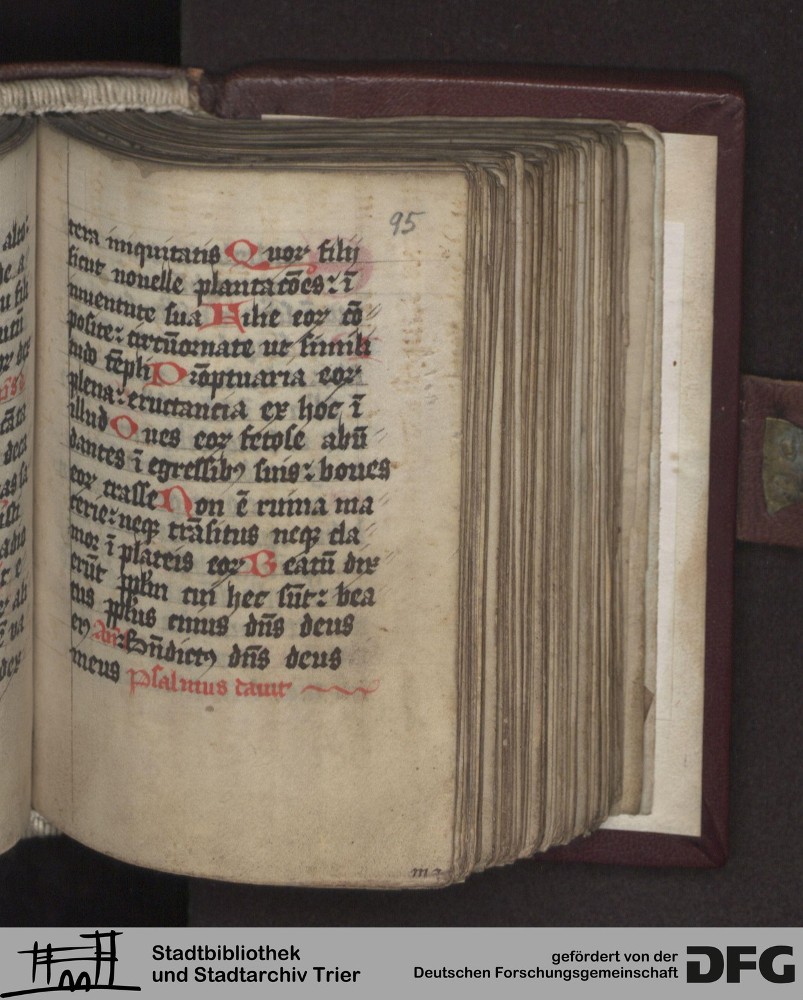 95
tera iniquitatis Quor filij
sicut nouelle plantacōes: ī
iuuentute sua Filie eor cō
posite: circūornate ut simili
tudo tēpli Prōptuaria eor
plena: eructantia ex hoc ī
illud Oues eor fetose abū
dantes ī egressibꝯ suis: boues
eor crasse Non ē ruina ma
cerie: neqꝫ trāsitus neqꝫ cla
mor ī plateis eor Beatū dix
erūt pplm cui hec sūt: bea
tus pplus cuius dn̄s deus
eiꝯ An̄ Bn̄dictꝯ dn̄s deus
meus Psalmus dauit
m 2
Stadtbibliothek
und Stadtarchiv Trier
gefördert von der
Deutschen Forschungsgemeinschaft
DFG